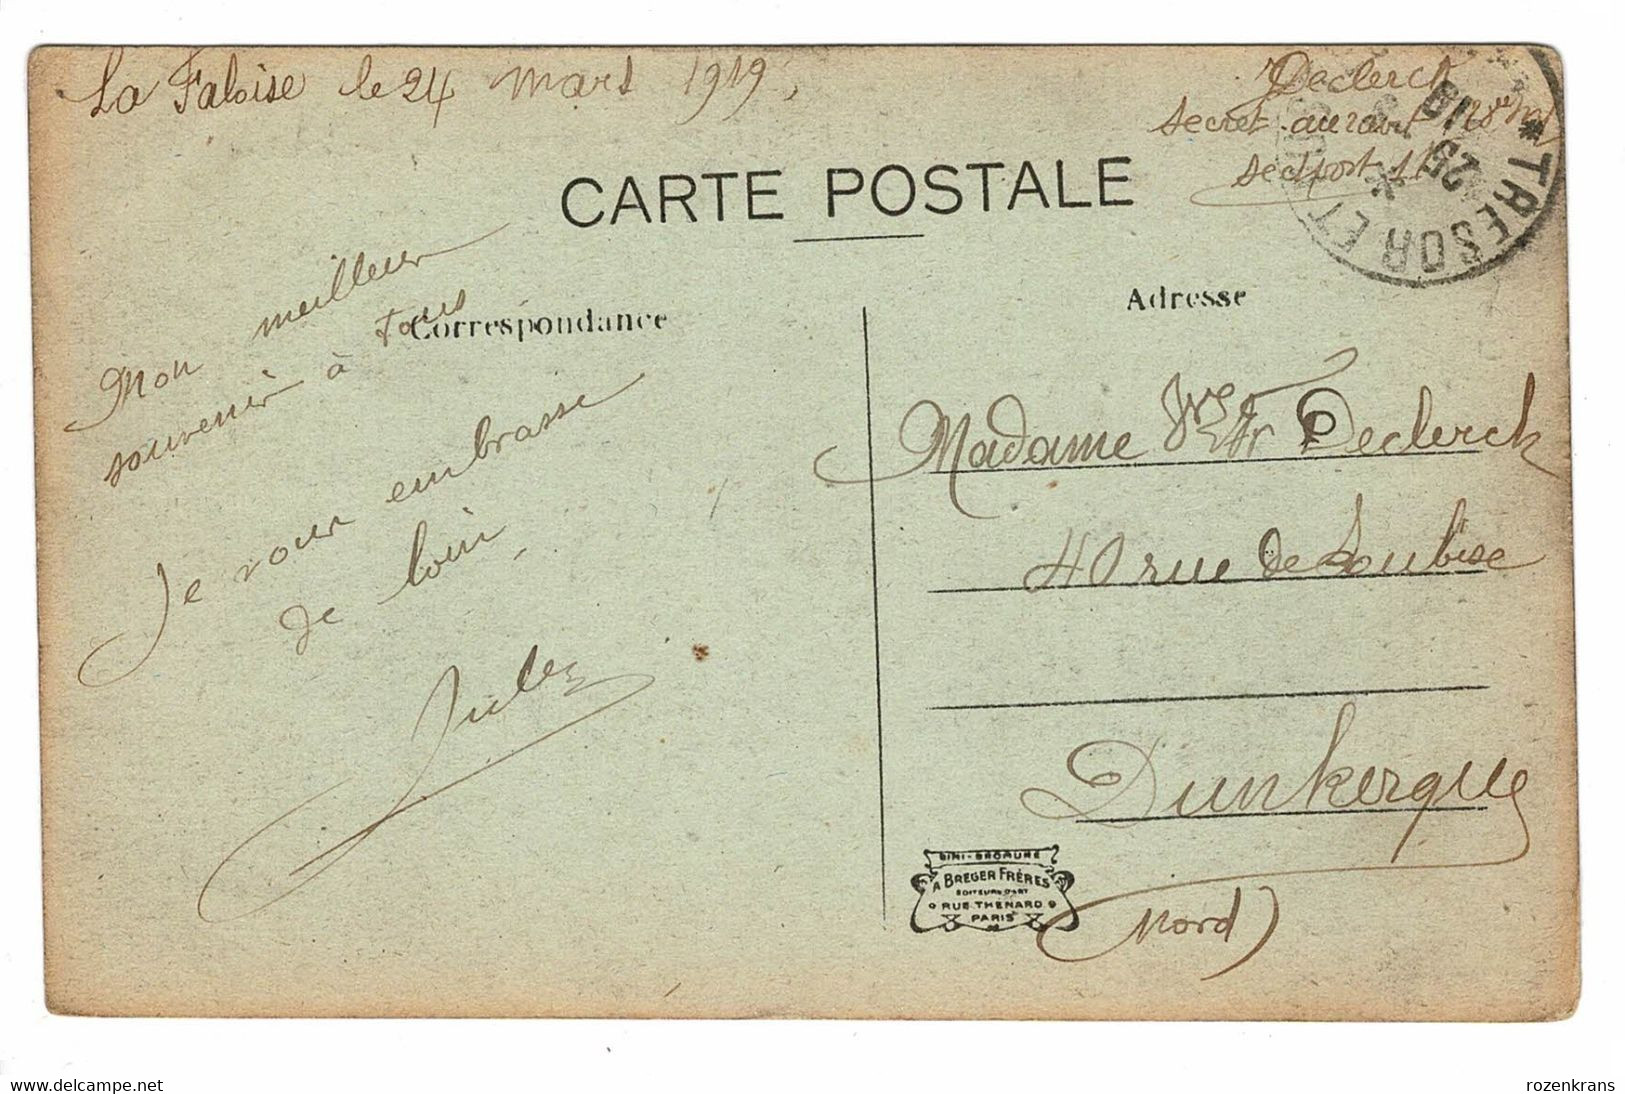 La Faloise le 24 mars 1919,
Declerck
secret. au ravt 128e
sect post
CARTE POSTALE
* TRESOR ET
25
Correspondance
Adresse
Mon meilleur
souvenir à tous
Je vous embrasse
de loin,
Jules
Madame Vve Declerck
40 rue de Soubise
Dunkerque
(Nord)
SIMI-BROMURE
A BREGER FRÈRES
EDITEURS D'ART
9 RUE THENARD 9
PARIS
www.delcampe.net
rozenkrans